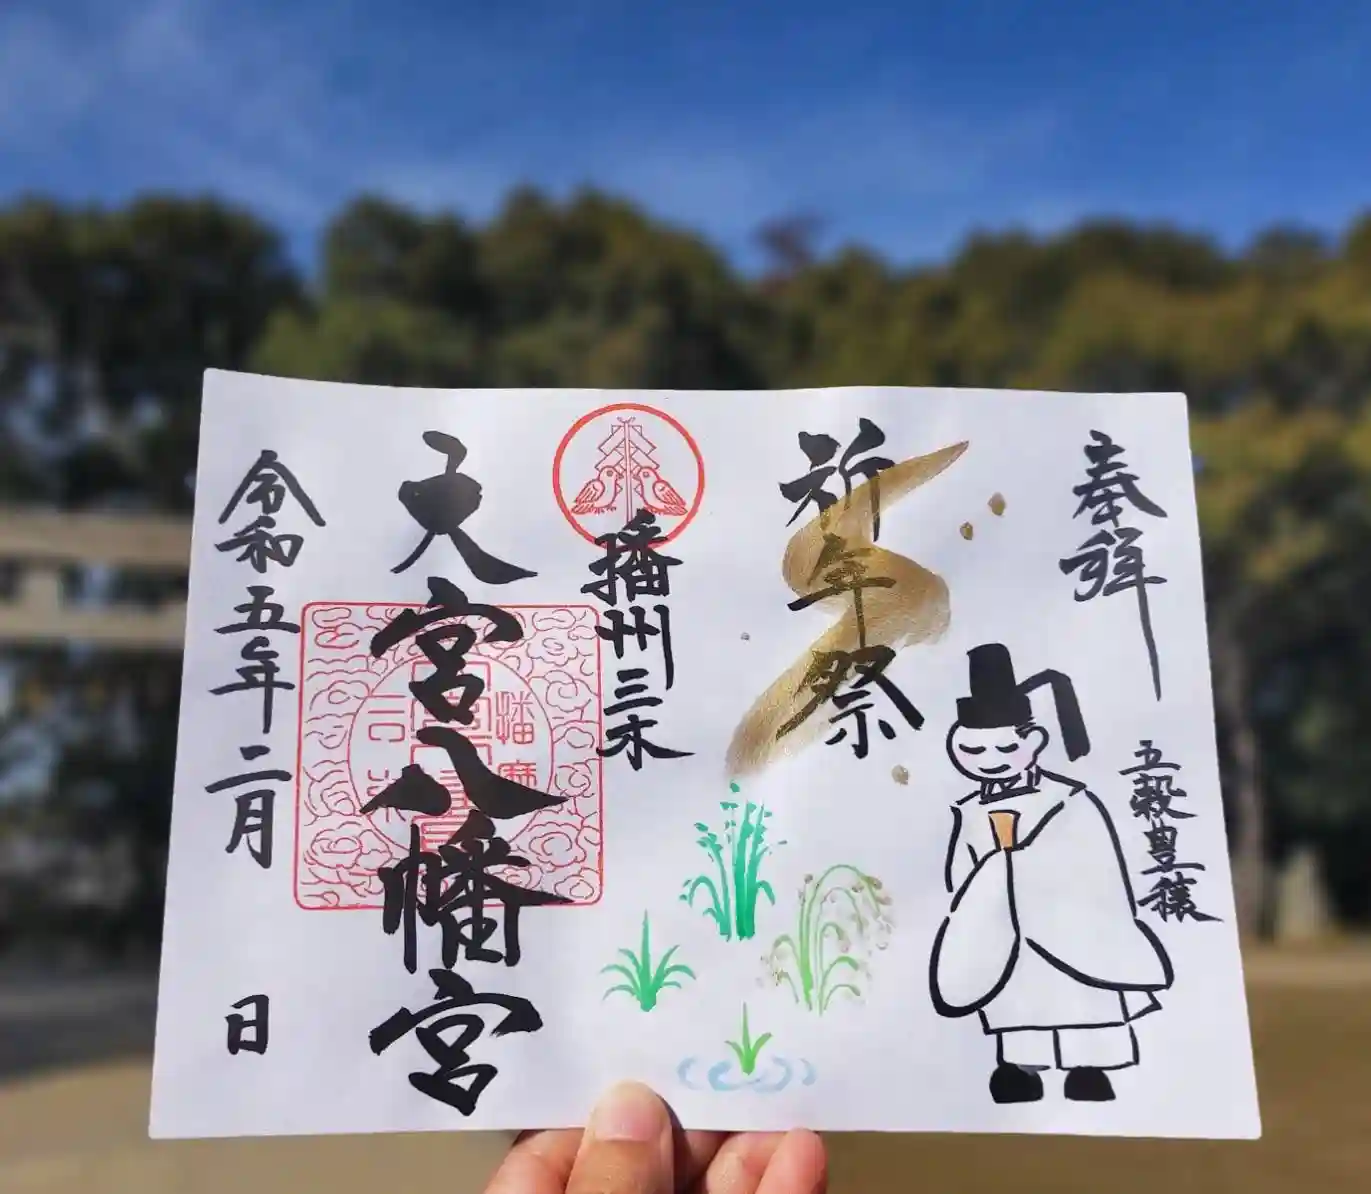 奉拝
五穀豊穣
祈年祭
播州三木
大宮八幡宮
播磨
三木
令和五年二月 日